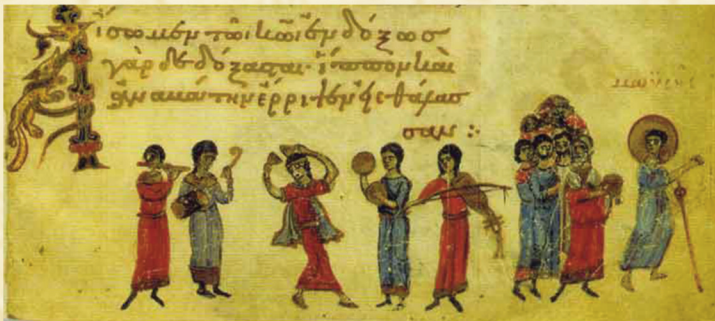 Αἴσωμεν τῶι κ̅ωι ἐνδόξωσ
γὰρ δεδόξασται· ἵππον καὶ
ἀναβάτην ἔρριψεν εἰς θάλασ
σαν :
μωϋσῆς